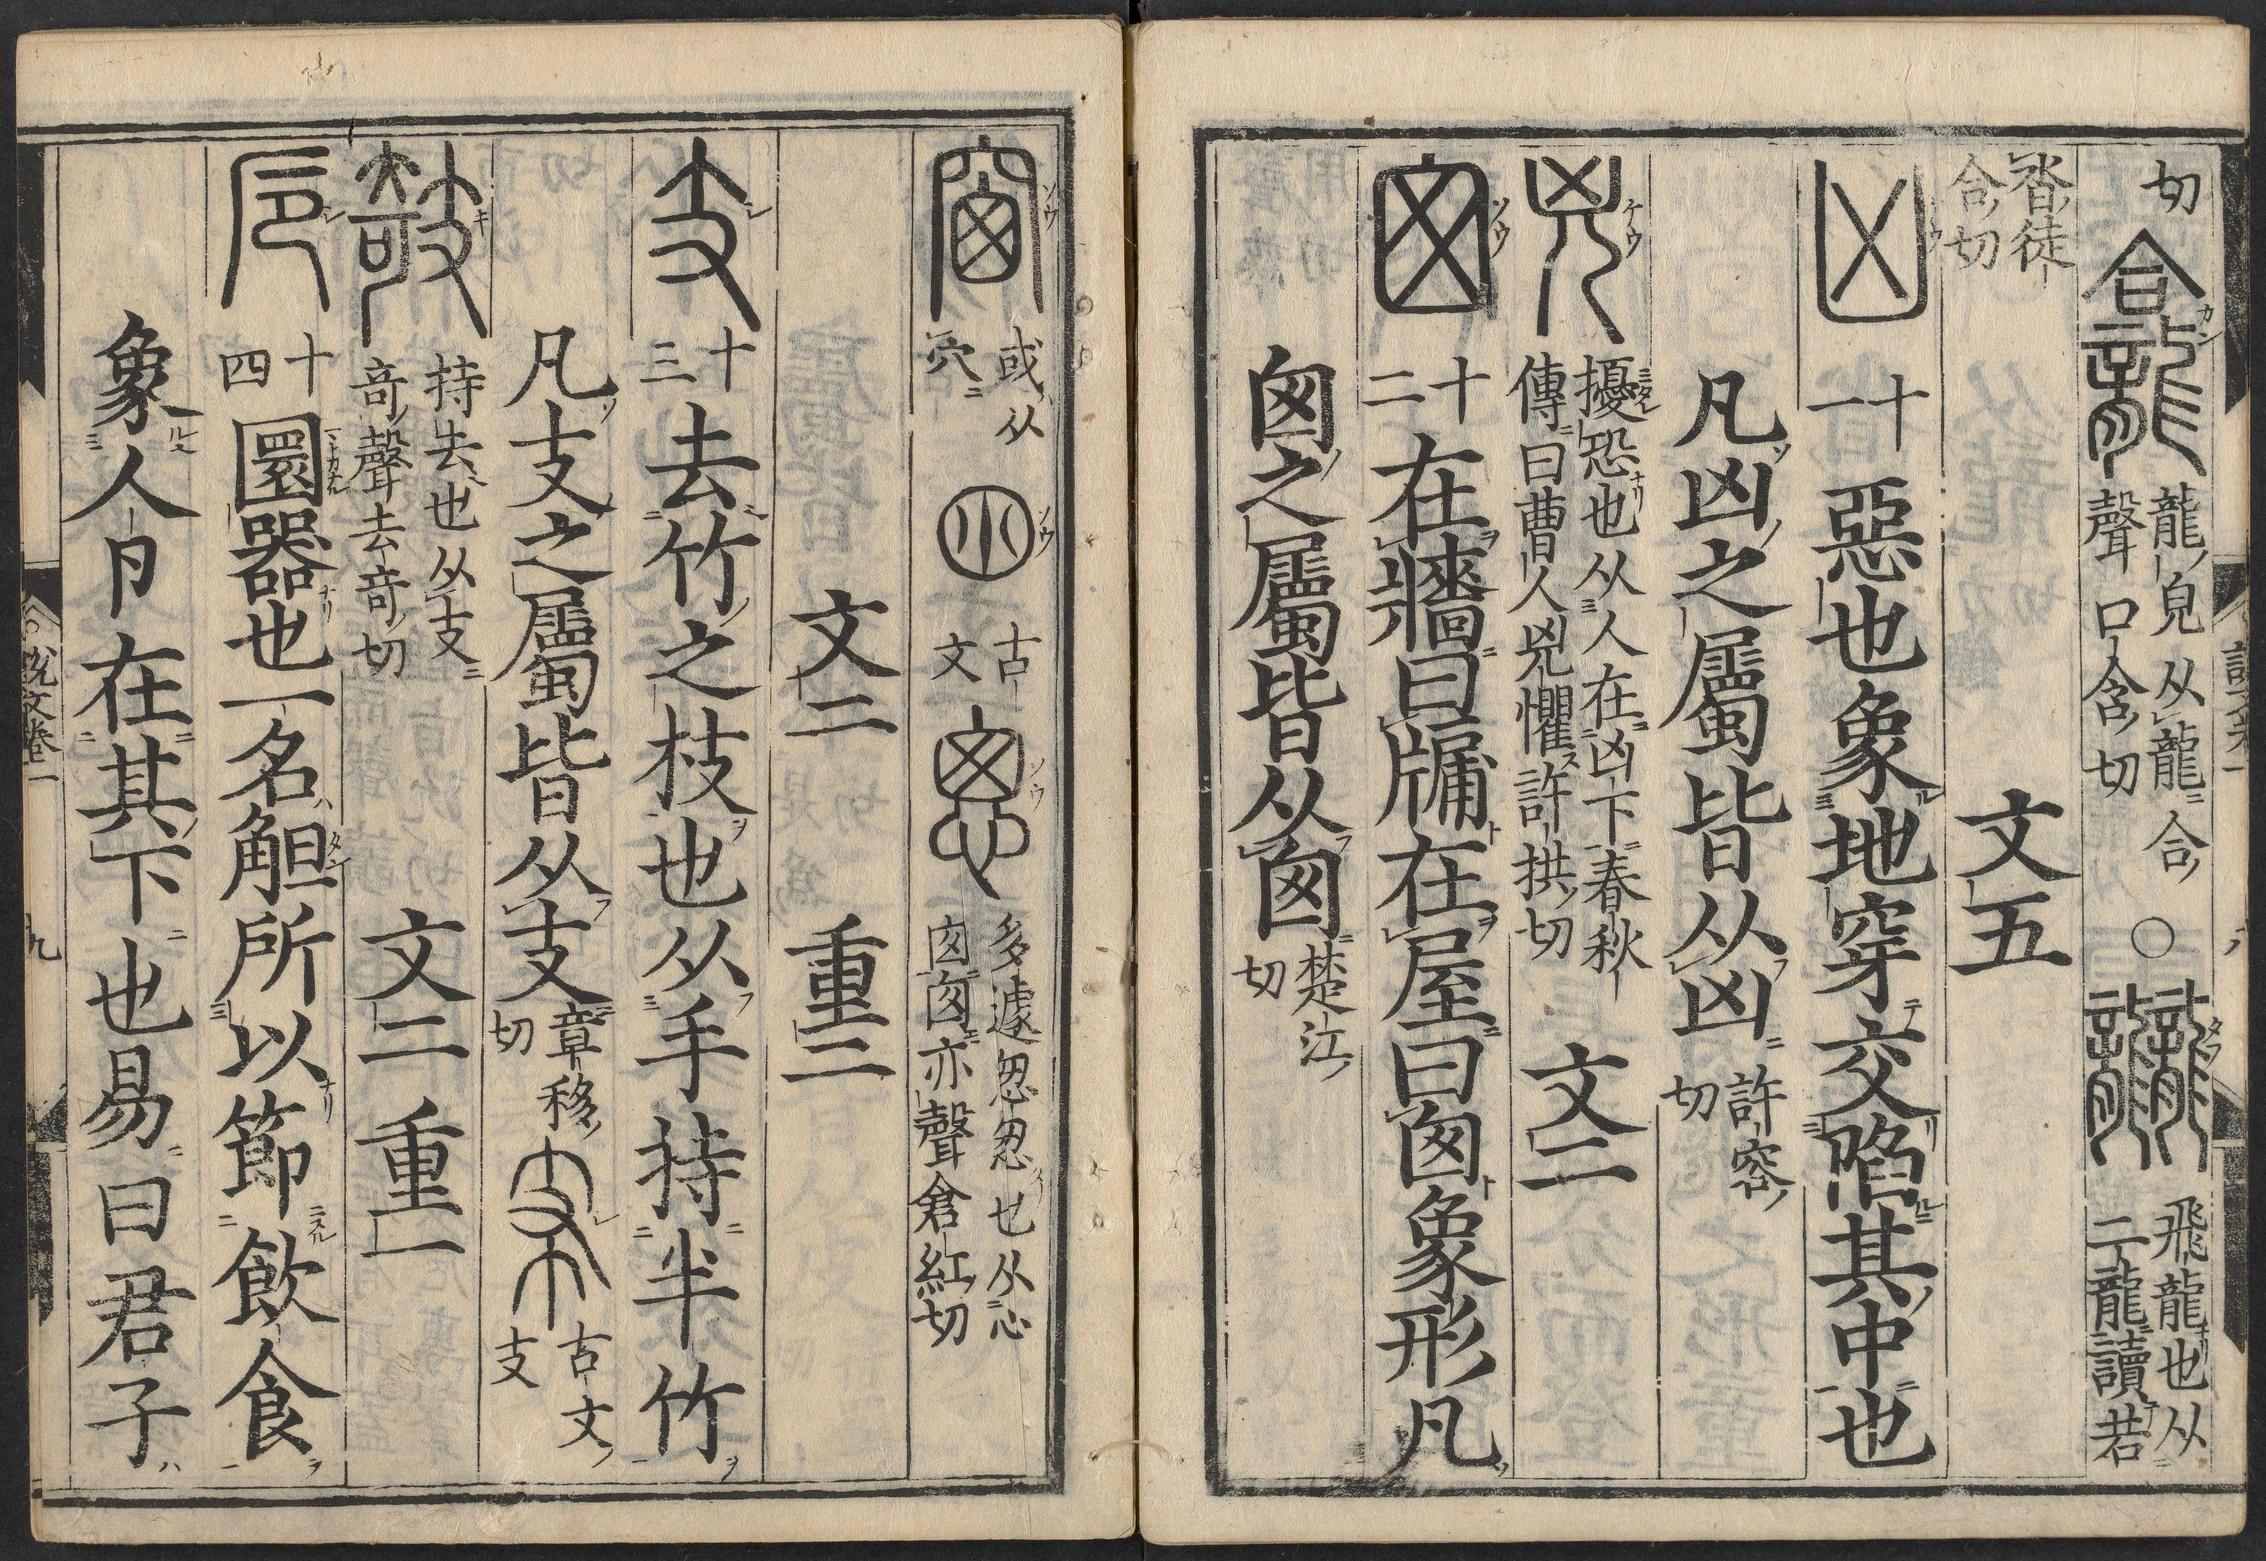 切 龕 龍皃从龍合聲口含切 ○ 龖 飛龍也从二龍讀若
沓徒合切 文五
凶 十一 惡也象地穿交陷其中也
凡凶之屬皆从凶 許容切
兇 擾恐也从人在凶下春秋傳曰曹人兇懼許拱切 文二
囪 十二 在牆曰牖在屋曰囱象形凡
囱之屬皆从囱 楚江切
窗 或从穴 古文 悤 多遽怱怱也从心囱囱亦聲倉紅切
文二 重二
支 十三 去竹之枝也从手持半竹
凡支之屬皆从支 章移切 古文支
攲 持去也从支奇聲去奇切 文二重一
卮 十四 圜器也一名觛所以節飲食
象人卪在其下也易曰君子
說文卷一 九